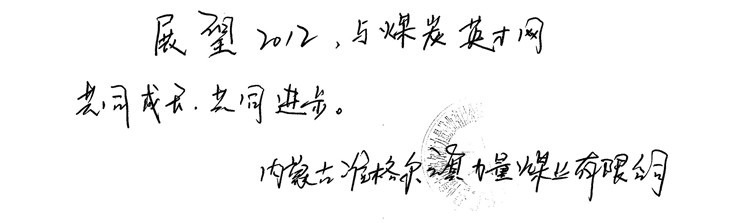 展望2012，与煤炭英才网
共同成长.共同进步。
内蒙古准格尔旗力量煤业有限公司